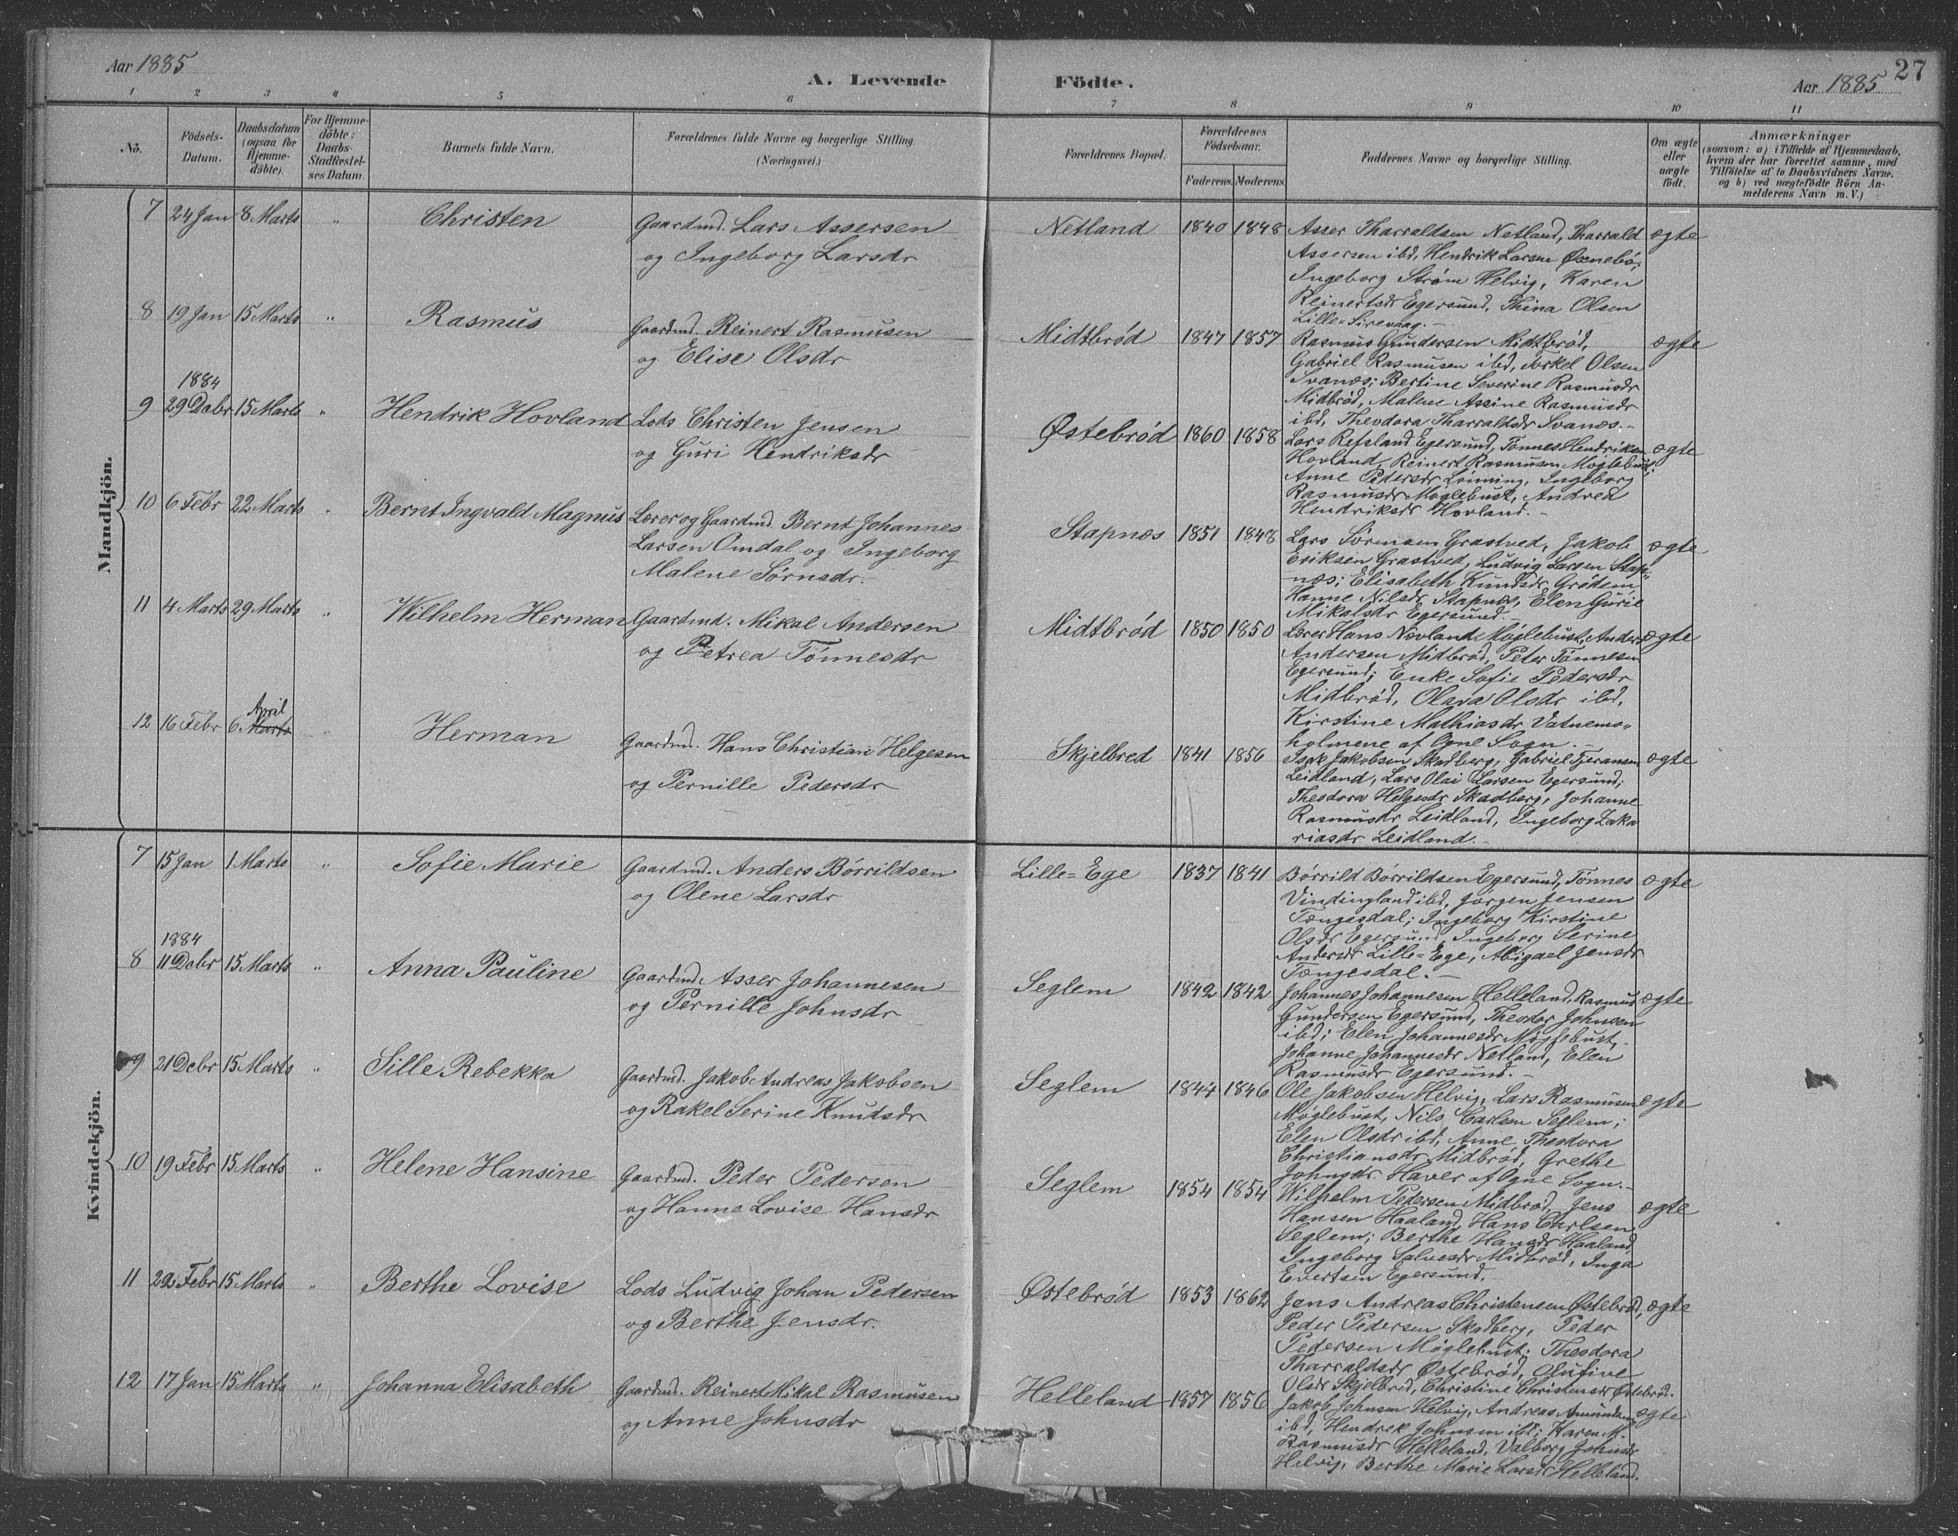 Aar 1885
A. Levende Födte.
Aar 1885
27
1 2 3 4 5 6 7 8 9 10 11
No.
Födsels-Datum.
Daabsdatum (ogsaa for Hjemme-döbte).
For Hjemme-döbte: Daabs-Stadfæstel-ses Datum.
Barnets fulde Navn.
Forældrenes fulde Navne og borgerlige Stilling. (Næringsvei.)
Forældrenes Bopæl.
Forældrenes Födselsaar.
Faderens. Moderens.
Faddernes Navne og borgerlige Stilling.
Om ægte eller uægte födt.
Anmærkninger
(saasom: a) i Tilfælde af Hjemmedaab, hvem der har forrettet samme, med Tilföielse af to Daabsvidners Navne. og b) ved uægtefödte Börn Anmelderens Navn m. V.)
Mandkjön.
7 24 Jan 8 Marts " Christen
Gaardmd. Lars Assersen
og Ingeborg Larsdr
Netland 1840 1848
Asser Tharraldsen Netland, Tharrald
Assersen ibd, Hendrik Larsen Øxnebö;
Ingeborg Strøm Helvig, Karen
Reinertsdr Egersund, Thina Olsen
Lille-Sirevaag.-
ægte
8 19 Jan 15 Marts " Rasmus
Gaardmd. Reinert Rasmusen
og Elise Olsdr
Midtbrød 1847 1857
Rasmus Gundersen Midtbrød,
Gabriel Rasmusen ibd, Torkel Olsen
Svanæs; Bertine Severine Rasmusdr
Midbrød, Malene Assine Rasmusdr
ibd, Theodora Tharraldsdr Svanæs.-
ægte
9 1884 29 Dcbr 15 Marts " Hendrik Hovland
Lods Christen Jensen
og Guri Hendriksdr
Østebrød 1860 1858
Lars Refsland Egersund, Tønnes Hendriksen
Hovland, Reinert Rasmusen Møglebust;
Anne Pedersdr Lønning, Ingeborg
Rasmusdr Møglebust, Andrea
Hendriksdr Hovland.-
ægte
10 6 Febr 22 Marts " Bernt Ingvald Magnus
Lærer og Gaardmd. Bernt Johannes
Larsen Omdal og Ingeborg
Malene Sørnsdr.
Stapnæs 1851 1848
Lars Sörensen Grastved, Jakob
Eriksen Grastved, Ludvig Larsen Stap-
næs; Elisabeth Knudsdr Grødem
Hanne Nilsdr Stapnæs, Elen Gurie
Mikalsdr Egersund.-
ægte
11 4 Marts 29 Marts " Wilhelm Herman
Gaardmd. Mikal Andersen
og Petrea Tönnesdr
Midtbrød 1850 1850
Lærer Hans Nevland Møglebust, Anders
Andersen Midbrød, Peter Tönnesen
Egersund; Enke Sofie Pedersdr
Midbrød, Olava Olsdr ibd,
Kirstine Mathiasdr Vatnems-
holmene af Ogne Sogn.-
ægte
12 16 Febr 6. Marts April " Herman
Gaardmd. Hans Christian Helgesen
og Pernille Pedersdr
Skjelbred 1841 1856
Isak Jakobsen Skadberg, Gabriel Tjeransen
Leidland, Lars Olai Larsen Egersund;
Theodora Helgesdr Skadberg, Johanne
Rasmusdr Leidland, Ingeborg Zaka
riasdr Leidland.-
ægte
Kvindekjön.
7 15 Jan 1. Marts " Sofie Marie
Gaardmd. Anders Börrildsen
og Olene Larsdr
Lille-Ege 1837 1841
Börrild Börrildsen Egersund, Tönnes
Vindingland ibd, Jørgen Jensen
Tængesdal; Ingeborg Kirstine
Olsdr Egersund, Ingeborg Serine
Andersdr Lille-Ege, Abigael Jensdr
Tængesdal.-
ægte
8 1884 11 Dcbr 15 Marts " Anna Pauline
Gaardmd. Asser Johannesen
og Pernille Johnsdr
Seglem 1842 1842
Johannes Johannesen Helleland, Rasmus
Gundersen Egersund, Theodor Johnsen
ibd; Elen Johannesdr Møglebust,
Johanne Johannesdr Netland, Elen
Rasmusdr Egersund.-
ægte
9 21 Dcbr 15 Marts " Sille Rebekka
Gaardmd. Jakob Andreas Jakobsen
og Rakel Serine Knudsdr
Seglem 1844 1846
Ole Jakobsen Helvig, Lars Rasmusen
Møglebust, Nils Carlsen Seglem;
Elen Olsdr ibd, Anne Theodora
Christiansdr Midbrød, Grethe
Johnsdr Haver af Ogne Sogn.-
ægte
10 19 Febr 15 Marts " Helene Hansine
Gaardmd. Peder Pedersen
og Hanna Lovise Hansdr
Seglem 1854 1854
Wilhelm Pedersen Midbrød, Jens
Hansen Haaland, Hans Carlsen
Seglem; Berthe Hansdr Haaland
Ingeborg Salvesdr Midbrød, Inga
Evertsen Egersund.-
ægte
11 22 Febr 15 Marts " Berthe Lovise
Lods Ludvig Johan Pedersen
og Berthe Jensdr.
Østebrød 1853 1862
Jens Andreas Christensen Østebrød,
Peder Pedersen Skadberg, Peder
Pedersen Møglebust; Theodora
Tharraldsdr Østebrød, Olufine
Olsdr Skjelbred, Christine Christensdr Østebrød.
ægte
12 17 Jan 15 Marts " Johanna Elisabeth
Gaardmd. Reinert Mikal Rasmusen
og Anne Johnsdr
Helleland 1857 1856
Jakob Johnsen Helvig, Andreas Amundsen
ibd, Hendrek Johnsen ibd; Karen M.
Rasmusdr Helleland, Valborg Johnsdr
Helvig, Berthe Marie Larsdr Helleland.
ægte